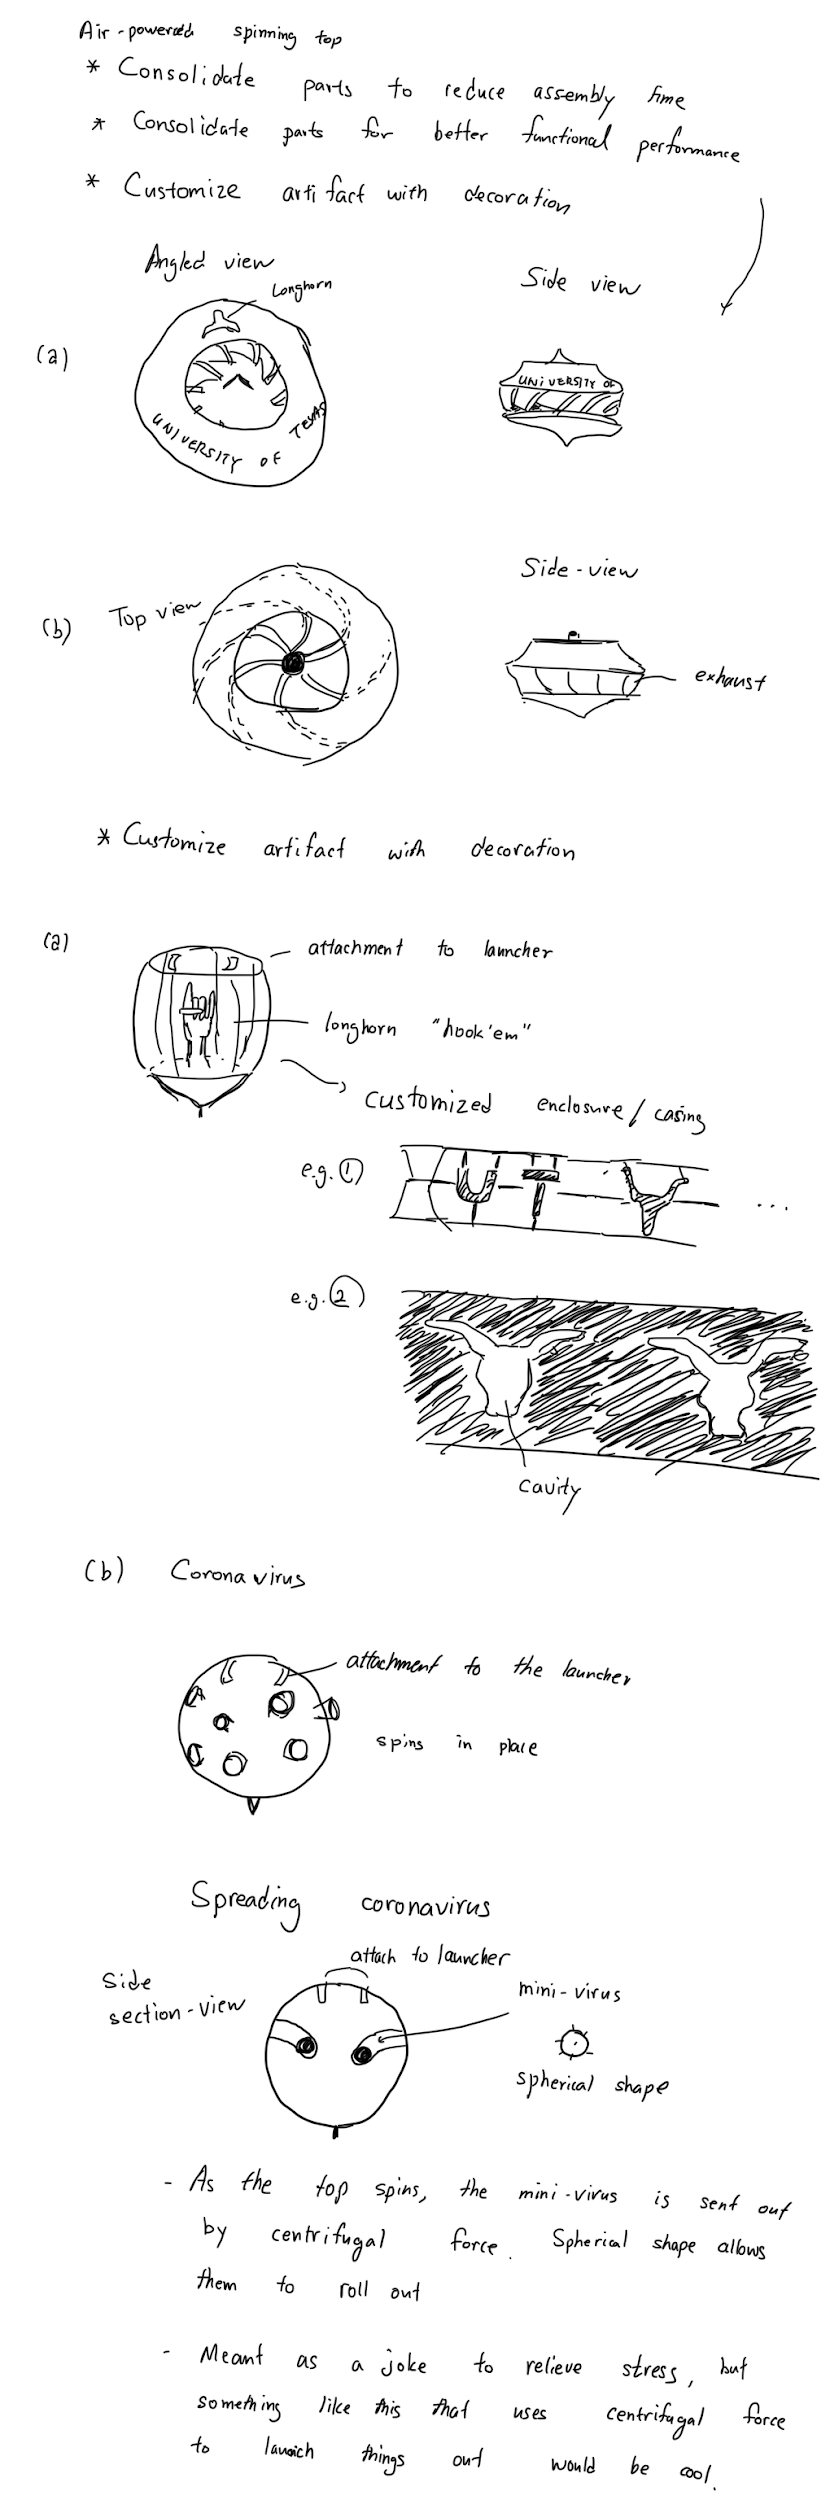 Air-powered spinning top
* Consolidate parts to reduce assembly time
* Consolidate parts for better functional performance
* Customize artifact with decoration
Angled view
Longhorn
Side view
(a)
UNIVERSITY OF TEXAS
UNIVERSITY OF
(b)
Top view
Side-view
exhaust
* Customize artifact with decoration
(a)
attachment to launcher
longhorn "hook'em"
customized enclosure/casing
e.g. ①
U T
...
e.g. ②
cavity
(b) Coronavirus
attachment to the launcher
spins in place
Spreading coronavirus
attach to launcher
Side
section-view
mini-virus
spherical shape
- As the top spins, the mini-virus is sent out
by centrifugal force. Spherical shape allows
them to roll out
- Meant as a joke to relieve stress, but
something like this that uses centrifugal force
to launch things out would be cool.